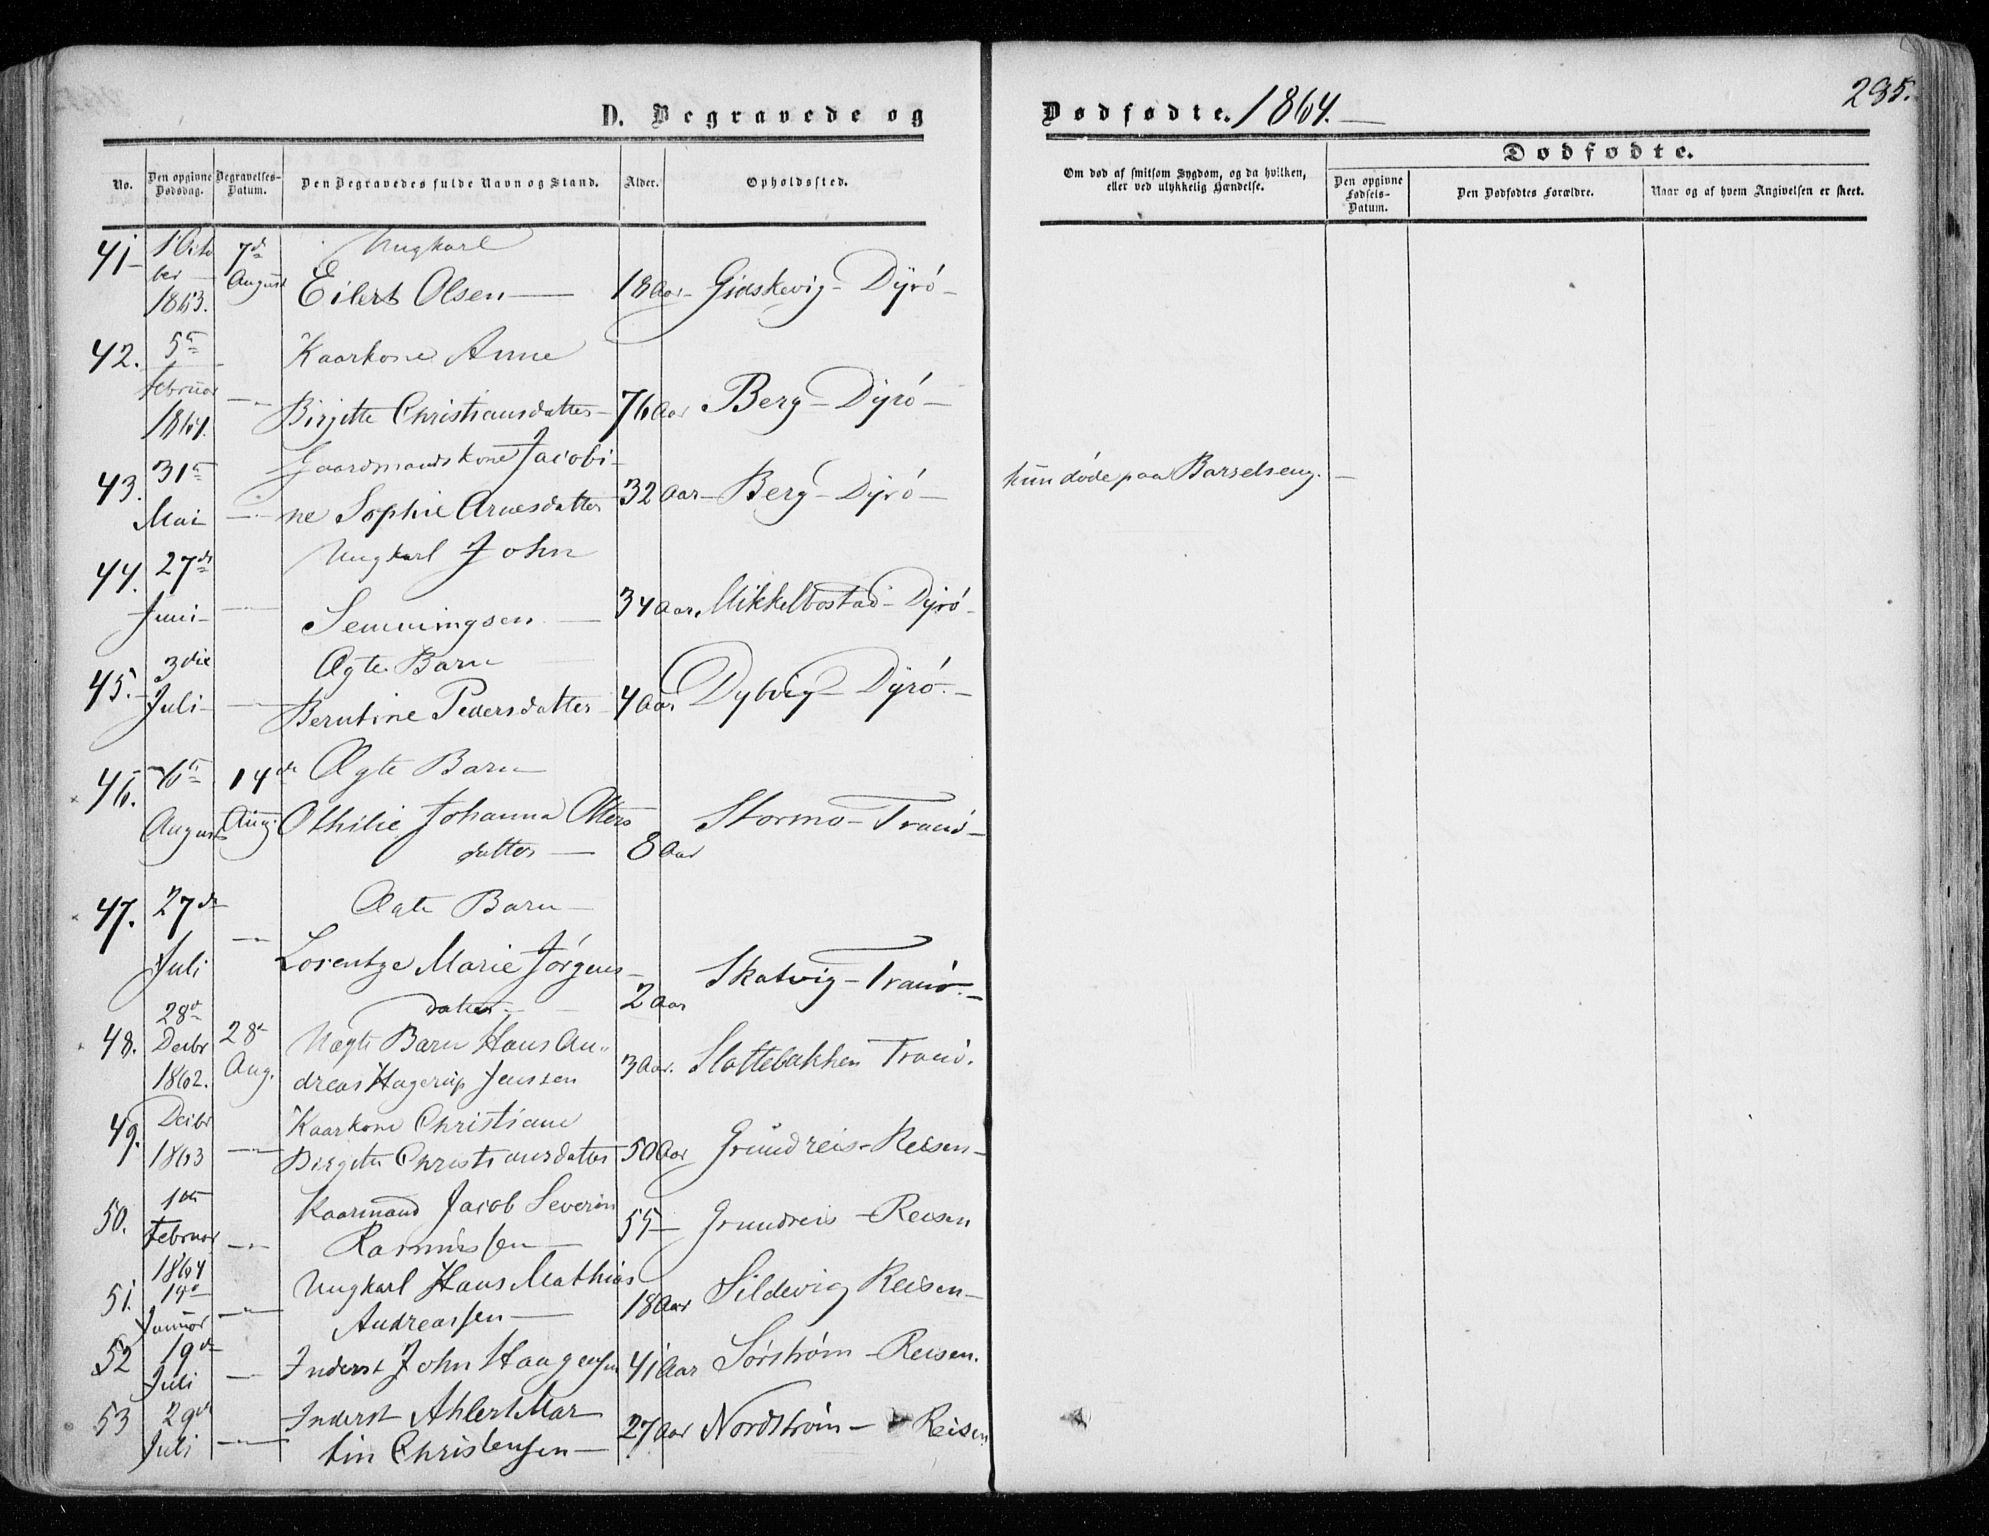 D. Begravede og Dødfødte. 1864.
285.
No.
Den opgivne Dødsdag.
Begravelses-Datum.
Den Begravedes fulde Navn og Stand.
Alder.
Opholdssted.
Om død af smitsom Sygdom, og da hvilken, eller ved ulykkelig Hændelse.
Dødfødte.
Den opgivne Fødsels-Datum.
Den Dødfødtes Forældre.
Naar og af hvem Angivelsen er skeet.
41 1 Octo 7d Ungkarl
ber August
1863. Eilert Olsen 18 Aar Gidskevig - Dyrö
42. 5te Kaarkone Anne
Februar
1864. Birgitte Christiansdatter 76 Aar Berg - Dyrö
43. 31te Gaardmandskone Jacobi-
Mai ne Sophie Arnesdatter 32 Aar Berg - Dyrö hun döde paa Barselseng.
44. 27de Ungkarl John
Juni Semmingsen 34 Aar. Mikkelbostad - Dyrö
45. 3die Ægte Barn
Juli Berntine Pedersdatter 4 Aar Dybvig - Dyrö.
46. 6te 14de Ægte Barn
August Aug: Othilie Johanna Otters
datter 8 Aar Stormo - Tranö
47. 27de Ægte Barn
Juli Lorentze Marie Jörgens
datter 2 Aar Skatvig - Tranö.
28d
48. Decbr 28d Uægte Barn Hans An-
1862. Aug. dreas Hagerup Jenssen 3 Aar. Slottebakken Tranö.
49. Decbr Kaarkone Christiane
1863 Birgitte Christiansdatter 50 Aar Grundreis - Reisen
50. 1ste Kaarmand Jacob Severin
Februar Rasmussen 55 Grundreis - Reisen
1864
51. Ungkarl Hans Mathias
Januar Andreassen 18 Aar Sildevig Reisen
52 19de Juli Inderst John Haagensen 41 Aar Sörström - Reisen.
53 29de Inderst Ahlert Mar
Juli tin Christensen 27 Aar Nordström - Reisen